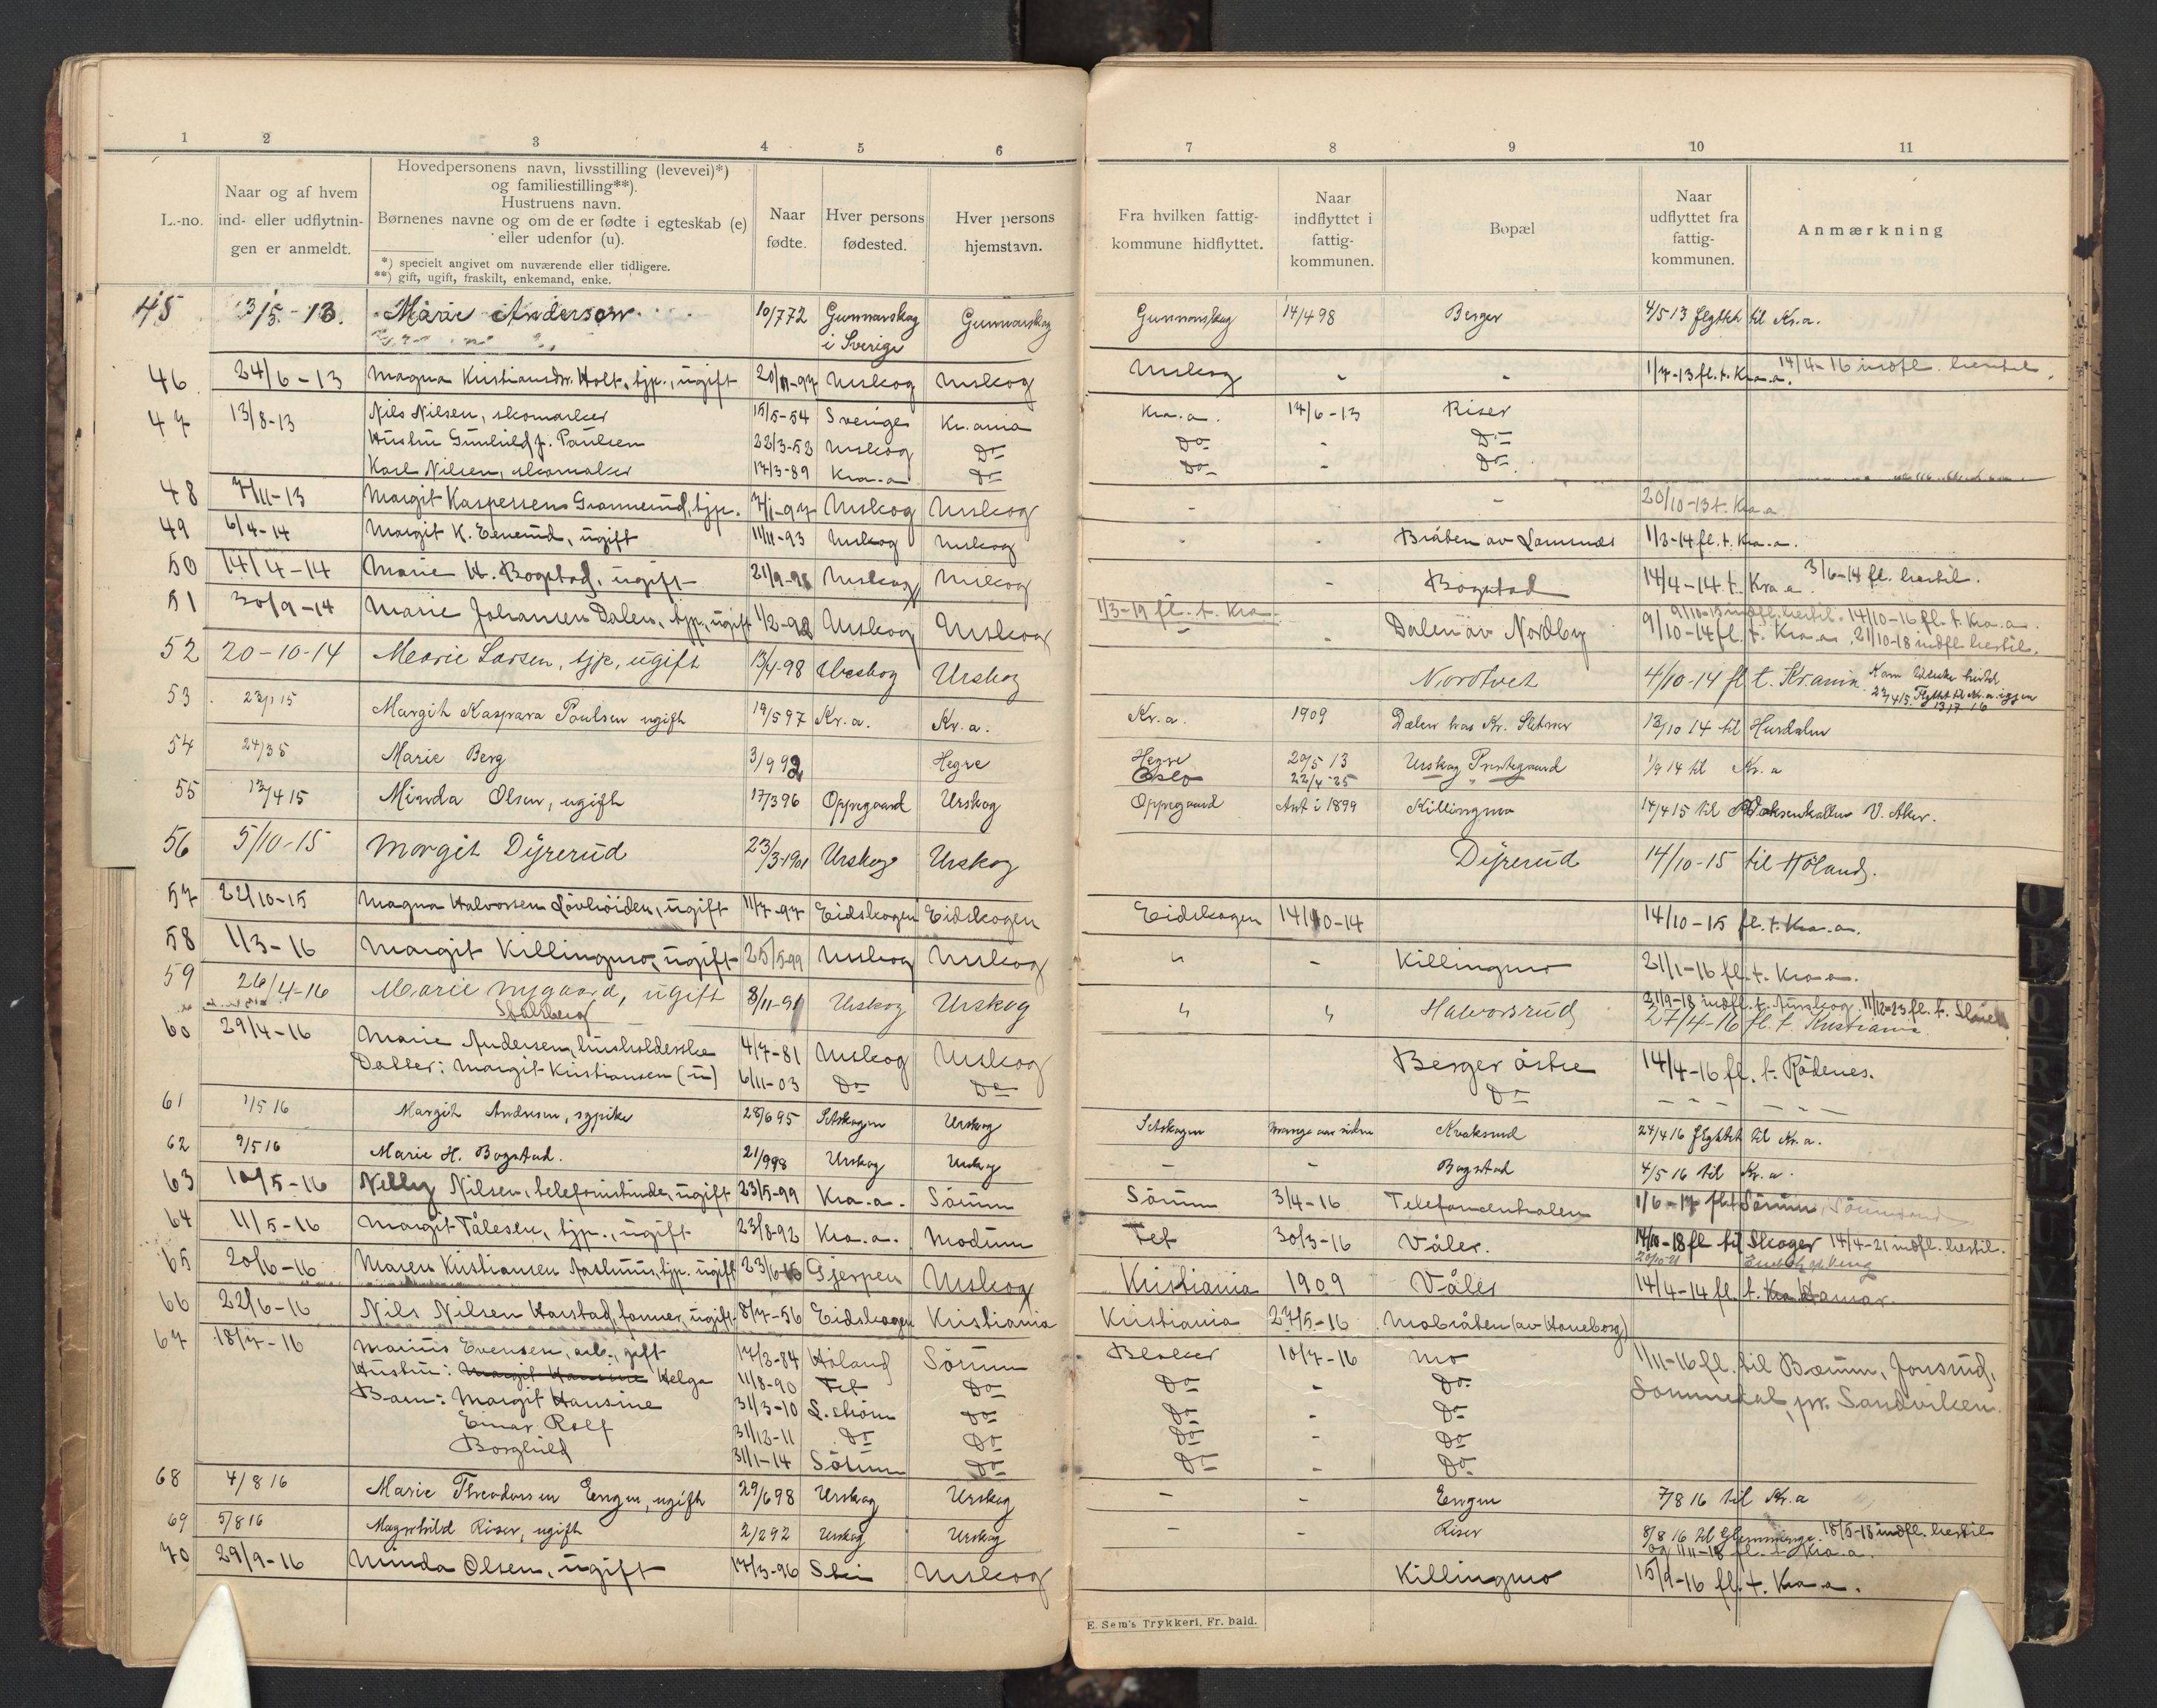 1 2 3 4 5 6 7 8 9 10 11
L.-no.
Naar og af hvem
ind- eller udflytnin-
gen er anmeldt.
Hovedpersonens navn, livsstilling (levevei)*)
og familiestilling**).
Hustruens navn.
Børnenes navne og om de er fødte i egteskab (e)
eller udenfor (u).
*) specielt angivet om nuværende eller tidligere.
**) gift, ugift, fraskilt, enkemand, enke.
Naar
fødte.
Hver persons
fødested.
Hver persons
hjemstavn.
Fra hvilken fattig-
kommune hidflyttet.
Naar
indflyttet i
fattig-
kommunen.
Bopæl
Naar
udflyttet fra
fattig-
kommunen.
Anmærkning
45 3/5-13. Marie Anderson 10/7 72 Gunnarskog Gunnarskog Gunnarskog 14/4 98 Berger 4/5 13 flyttet til Kr.a.
i Sverige
46 24/6-13 Magna Kristiansdr. Holt, tjp., ugift 20/11-97 Urskog Urskog Urskog - - 1/7-13 fl. t. Kra.a. 14/4-16 indfl. hertil.
47 13/8-13 Nils Nilsen, skomaker 15/5-54 Sverige Kr.ania Kra.a. 14/6-13 Riser
Hustru Gunhild f. Paulsen 22/3-52 Urskog Do Do - Do
Karl Nilsen, skomaker 17/3-89 Kra.a Do Do - Do.
48 7/11-13 Margit Kaspersen Grannerud, tjp. 7/1-97 Urskog Urskog - - 20/10-13 t. Kra.a.
49 6/4-14 Margit K. Evenrud, ugift 11/11-93 Urskog Urskog - - Bråten av Lannes 1/3-14 fl. t. Kra.a.
50 14/4-14 Marie H. Bogstad, ugift 21/9-98 Urskog Urskog - Bogstad 14/4-14 t. Kra.a. 3/6-14 fl. hertil.
51 30/9-14 Marie Johansen Dalen, tjp., ugift 1/2-98 Urskog Urskog 1/3-19 fl. t. Kra - - Dalen av Nordby 9/10-14 fl. t. Kra.a. 21/10-18 indfl. hertil.
9/10-15 indfl. hertil. 14/10-16 fl. t. Kra.a.
52 20-10-14 Marie Larsen, tjp, ugift 13/4-98 Urskog Urskog Nordtvet 4/10-14 fl t. Kr.ania. Kom tilbake hertil
22/4 15. Flyttet til Kr.a. igjen
53 23/1 15 Margith Kaspara Poulsen ugift 19/5 97 Kr.a. Kr.a. Kr.a. 1909 Dælen hos Kr. Sletner 13/10 14 til Hurdalen
54 24/3 5 Marie Berg 3/9 92 Hegre Hegre 20/5 13 Urskog Prestegaard 1/9 14 til Kr.a
Oslo 22/4-35
55 13/4 15 Minda Olsen, ugift 17/3 96 Oppegaard Urskog Oppegaard Ant i 1899 Killingmo 14/4 15 til Voksenkollen V. Aker.
56 5/10-15 Margit Dyrerud 23/3-1901 Urskog Urskog Dyrerud 14/10-15 til Höland.
57 22/10-15 Magna Halvorsen Lövhöiden, ugift 11/7-97 Eidskogen Eidskogen Eidskogen 14/10-14 14/10-15 fl. t. Kra.a.
58 1/3-16 Margit Killingmo, ugift 25/5-99 Urskog Urskog " - Killingmo 21/1-16 fl. t. Kra.a.
59 26/4-16 Marie Nygaard, ugift 8/11-91 Urskog Urskog " " Halvorsrud 21/9-18 indfl. t. Aurskog. 11/12-23 fl. t.
27/4-16 fl. t. Kristiania
60 29/4-16 Marie Andersen, husholderske 4/7-81 Urskog Urskog Berger östre 14/4-16 fl. t. Rödenes.
Datter: Margit Kristiansen (u) 6/11-03 Do Do Do - " - - " -
61 1/5 16 Margith Andresen, sypike 28/6 95 Setskogen Urskog Setskogen Mange aar siden Kvaksrud 24/4 16 flyttet til Kr.a.
62 9/5 16 Marie H. Bogstad. 21/9 98 Urskog Urskog - - Bogstad 4/5 16 til Kr.a.
63 10/5-16 Nelly Nilsen, telefonistinde, ugift 23/5-99 Kra.a. Sörum Sörum 3/4-16 Telefoncentralen 1/6-17 flt Sörum,
64 11/5-16 Margit Tålesen, tjp., ugift 23/8-92 Kra.a. Modum Fet 30/3-16 Våler. 14/10-18 fl til Skoger 14/4-21 indfl. hertil.
65 20/6-16 Maren Kristiansen Aashuus, tjp. ugift Gjerpen Urskog Kristiania 1909 Våler 14/4-14 fl. t. Hamar.
66 22/6-16 Nils Nilsen Harstad, former, ugift 8/7-56 Eidskogen Kristiania Kristiania 27/5-16 Mobråten (av Haneborg)
67 18/7-16 Marius Evensen, arb., gift 17/2-84 Höland Sörum Blaker 10/7-16 Mo 1/11-16 fl. til Bærum, Jonsrud,
Hustru: Margit Hansine Helga 11/8-90 Fet Do Do - Do Sommedal, pr. Sandviken.
Barn: Margit Hansine 31/3-10 L.ström Do Do - Do
Einar Rolf 31/12-11 Do Do Do - Do
Borghild 31/1-14 Sörum Do Do - Do
68 4/8 16 Marie Theodorsen Engen, ugift 29/6 98 Urskog Urskog - - Engen 7/8 16 til Kr.a
69 5/8 16 Magnhild Riser, ugift 2/2 92 Urskog Urskog - - Riser 8/8 16 til Glemminge. 18/5-18 indfl. hertil
og 1/11-18 fl. t. Kra.a.
70 29/9-16 Minda Olsen, ugift 17/3-96 Ski Urskog Killingmo 15/9-16 fl. t. Kra.a.
E. Sem's Trykkeri, Fr. hald.
O
P
Q
R
S
T
U
V
W
X
Y